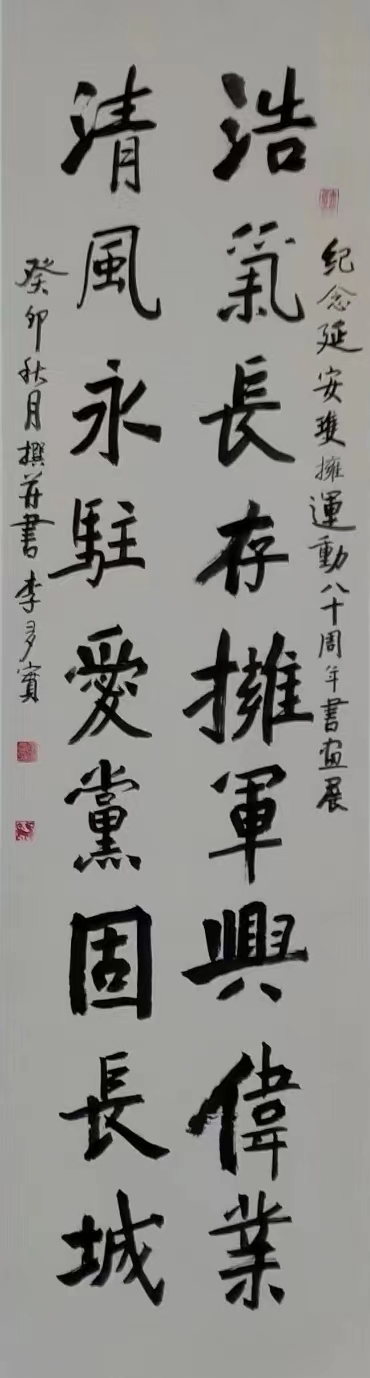 紀念延安雙擁運動八十周年書畫展
浩氣長存擁軍興偉業
清風永駐愛黨固長城
癸卯秋月撰并書李多寳